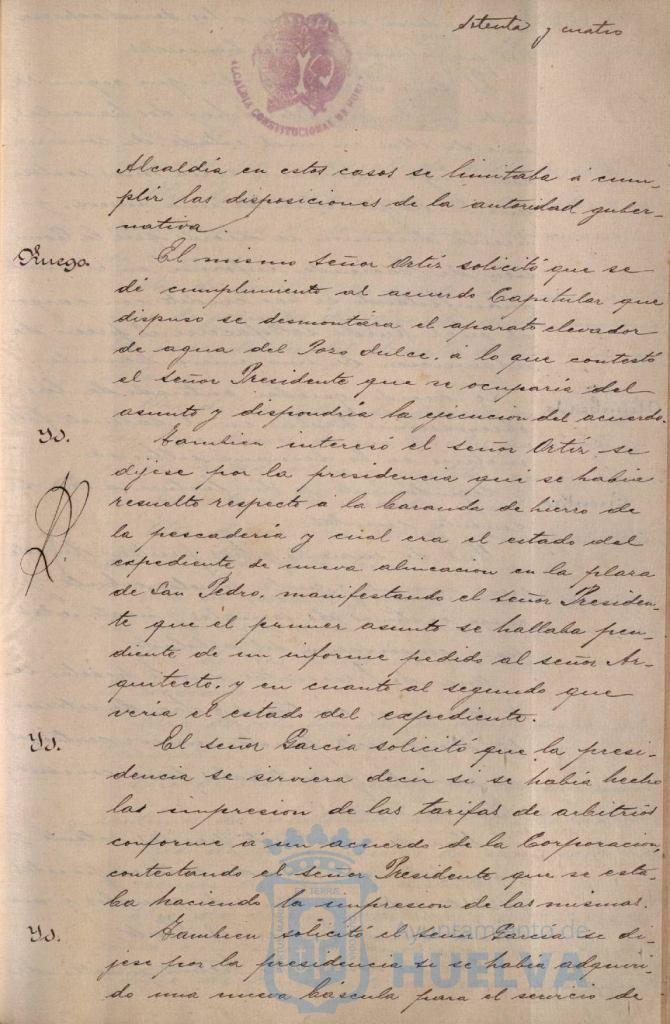 Setenta y cuatro
ALCALDIA CONSTITUCIONAL DE HUELVA
Alcaldía en estos casos se limitaba á cum-
plir las disposiciones de la autoridad guber-
nativa.
Ruego.
El mismo señor Ortíz solicitó que se
dé cumplimiento al acuerdo Capitular que
dispuso se desmontára el aparato elevador
de agua del Pozo dulce, á lo que contestó
el señor Presidente que se ocuparía del
asunto y dispondría la ejecucion del acuerdo.
Id.
Tambien interesó el señor Ortíz se
dijese por la presidencia qué se había
resuelto respecto á la baranda de hierro de
la pescadería y cual era el estado del
expediente de nueva alineacion en la plaza
de San Pedro, manifestando el señor Presiden-
te que el primer asunto se hallaba pen-
diente de un informe pedido al señor Ar-
quitecto, y en cuanto al segundo que
vería el estado del expediente.
Id.
El señor García solicitó que la presi-
dencia se sirviera decir si se había hecho
las impresion de las tarifas de arbitrios
conforme á un acuerdo de la Corporacion,
contestando el señor Presidente que se esta-
ba haciendo la impresion de las mismas.
Id.
Tambien solicitó el señor García se di-
jese por la presidencia si se había adquiri-
do una nueva báscula para el servicio de
Ayuntamiento de
HUELVA